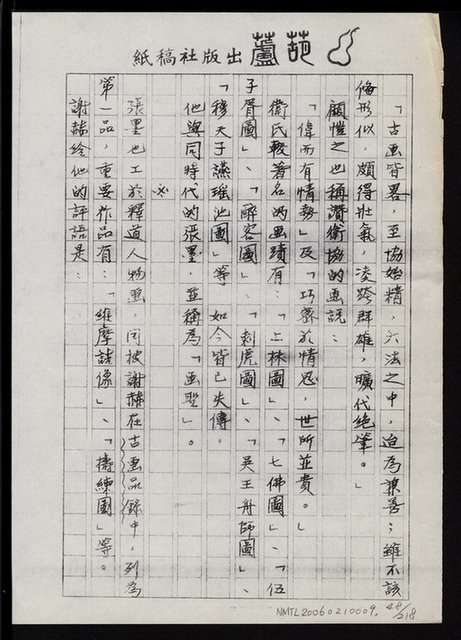 葫蘆出版社稿紙
「古画皆畧，至協始精，六法之中，迨為兼善；雖不該
備形似，頗得壯氣，凌跨群雄，曠代絕筆。」
顧愷之也稱讚衛協的画說：
「偉而有情勢」及「巧密於情思，世所並貴。」
衛氏較著名的画蹟有：「上林圖」、「七佛圖」、「伍
子胥圖」、「醉客圖」、「刺虎圖」、「吳王舟師圖」、
「穆天子燕瑤池圖」等 如今皆已失傳。
他與同時代的張墨，並稱為「画聖」。
※
張墨也工於釋道人物画，同被謝赫在古画品錄中，列為
第一品，重要作品有：「維摩詰像」、「擣練圖」等。
謝赫給他的評語是：
NMTL20060210009, 48/218